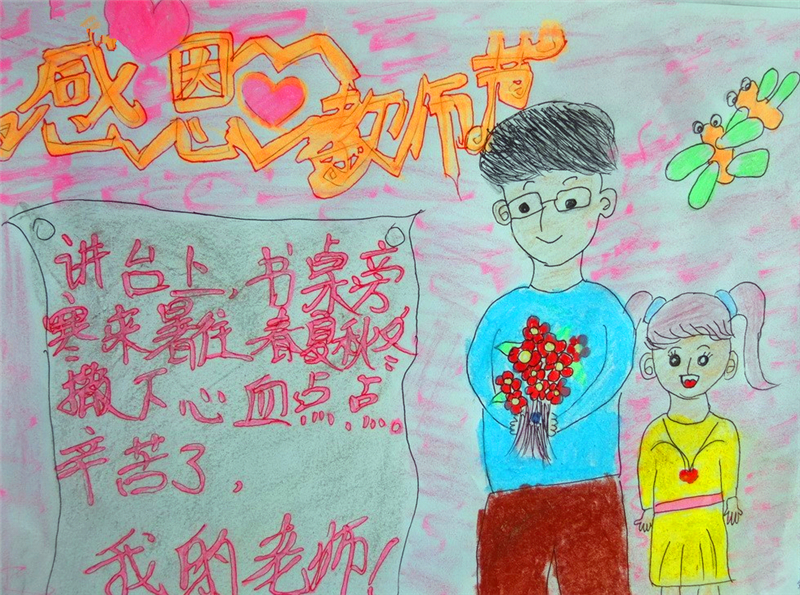 感恩教师节
讲台上，书桌旁
寒来暑往春夏秋冬
撒下心血点点。
辛苦了，
我的老师！